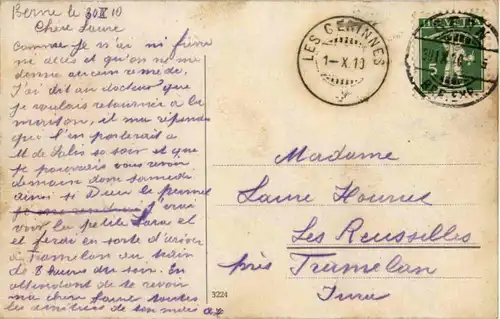 Berne le 30 IX 10
Chère Laure
Comme je n'ai ni fièvre
ni accès et qu'on ne me
donne aucun remède.
J'ai dit au docteur que
je voulais retourner à la
maison, il m'a répondu
qu'il l'en parlerait à
M de Salis ce soir et que
je pourrais vous revoir
demain dans samedi
ainsi si Dieu le permet
j'irai
voir la petite Sara et
et ferai en sorte d'arriver
à Tramelan au train
de 8 heures du soir. En
attendant de te revoir
ma chère Laure toutes
les amitiés de ton
LES GENINNES
1-X.10
5
Madame
Laure Houriet
Les Reussilles
près Tramelan
Jura
3224